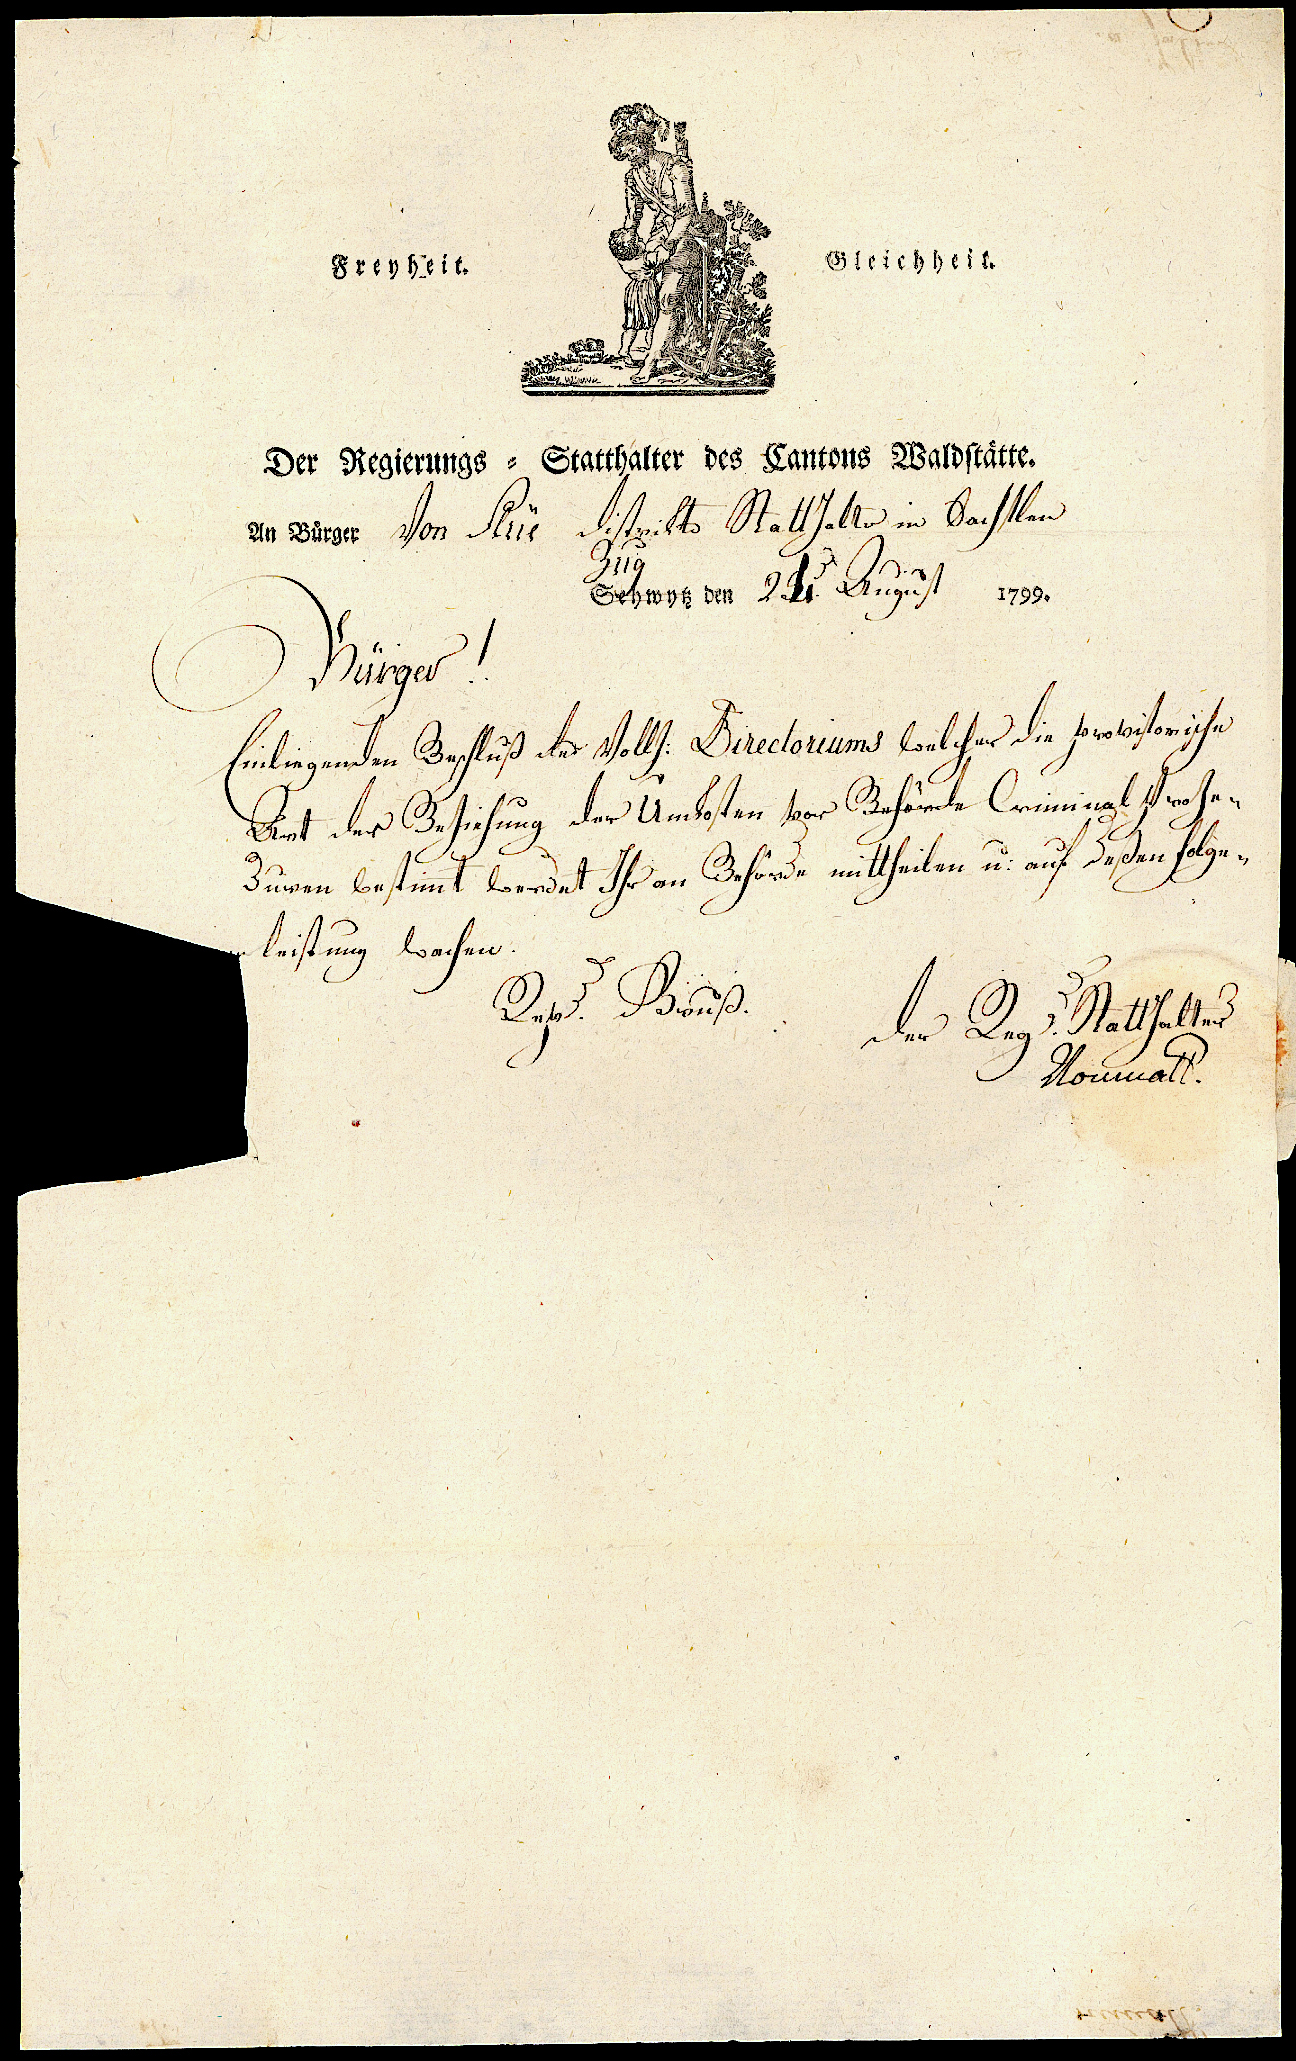 Freyheit. Gleichheit.
Der Regierungs = Statthalter des Cantons Waldstätte.
An Bürger Von Flüe Distrikts Statthalter in Sachslen
Zug
Schwytz den August 1799.
Bürger!
Einliegenden Beschluß des Vollz: Directoriums welcher die provisorische
Art der Beziehung der Unkosten vor Behörde Criminal Proze-
duren bestimt werdet Ihr an Behörde mittheilen u: auf deßen Folge-
leistung wachen.
Rep. Gruß.
Der Reg. Statthalter